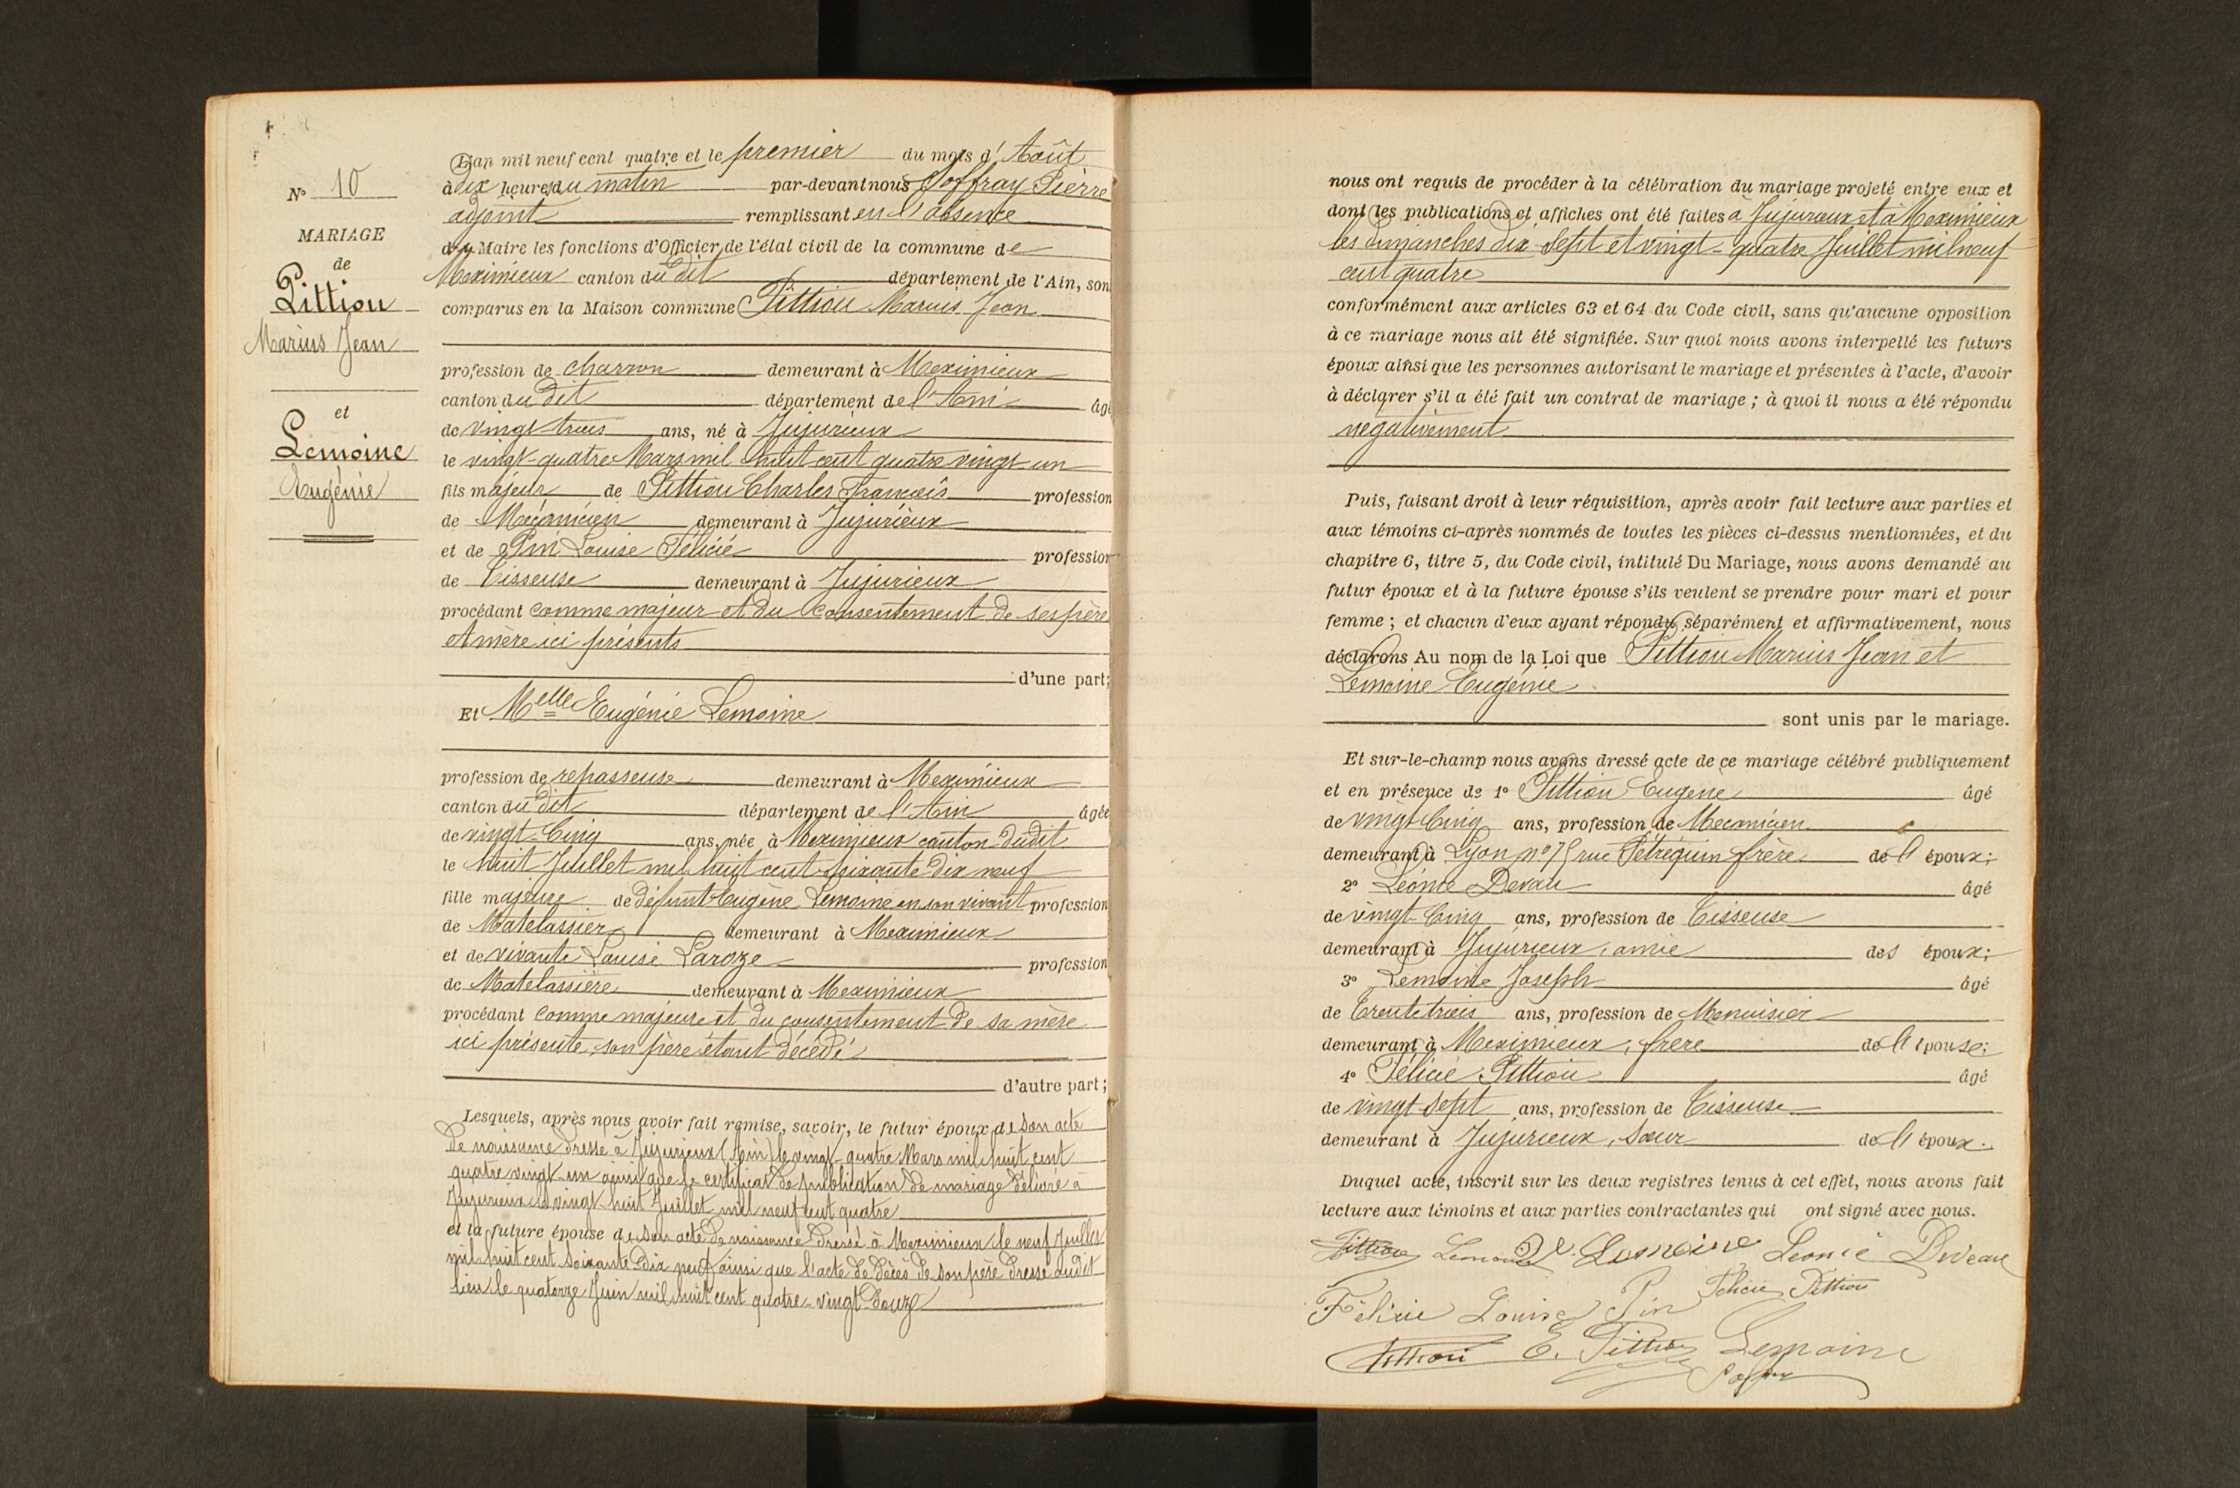 N° 10
MARIAGE
de
Pittiou
Marius Jean
et
Lemoine
Eugénie
L'an mil neuf cent quatre et le premier du mois d'Août
à dix heures du matin par-devant nous Joffray Pierre
adjoint remplissant en l'absence
du Maire les fonctions d'Officier de l'état civil de la commune de
Meximieux canton du dit département de l'Ain, son
comparus en la Maison commune Pittiou Marius Jean
profession de charron demeurant à Meximieux
canton du dit département de l'Ain âgé
de vingt trois ans, né à Jujurieux
le vingt-quatre Mars mil huit cent quatre vingt-un
fils majeur de Pittiou Charles François profession
de Mécanicien demeurant à Jujurieux
et de Pin Louise Félicie profession
de Tisseuse demeurant à Jujurieux
procédant comme majeur et du consentement de ses père
et mère ici présents
d'une part;
Et Melle Eugénie Lemoine
profession de repasseuse demeurant à Meximieux
canton du dit département de l'Ain âgée
de vingt-Cinq ans, née à Meximieux canton dudit
le huit Juillet mil huit cent soixante Dix neuf
fille majeure de défunt Eugène Lemoine en son vivant profession
de Matelassier demeurant à Meximieux
et de vivante Louise Laroze profession
de Matelassière demeurant à Meximieux
procédant comme majeure et du consentement de sa mère
ici présente, son père étant décédé
d'autre part;
Lesquels, après nous avoir fait remise, savoir, le futur époux de son acte
de naissance dressé à Jujurieux (Ain) le vingt-quatre Mars mil huit cent
quatre vingt-un ainsi que le certificat de publication de mariage délivré à
Jujurieux le vingt-huit Juillet mil neuf cent quatre
et la future épouse de son acte de naissance dressé à Meximieux le neuf Juillet
mil huit cent soixante Dix neuf ainsi que l'acte de décès de son père dressé audit
lieu le quatorze Juin mil huit cent quatre-vingt-Douze
nous ont requis de procéder à la célébration du mariage projeté entre eux et
dont les publications et affiches ont été faites à Jujurieux et à Meximieux
les Dimanches dix Sept et vingt-quatre Juillet mil neuf
cent quatre
conformément aux articles 63 et 64 du Code civil, sans qu'aucune opposition
à ce mariage nous ait été signifiée. Sur quoi nous avons interpellé les futurs
époux ainsi que les personnes autorisant le mariage et présentes à l'acte, d'avoir
à déclarer s'il a été fait un contrat de mariage ; à quoi il nous a été répondu
négativement
Puis, faisant droit à leur réquisition, après avoir fait lecture aux parties et
aux témoins ci-après nommés de toutes les pièces ci-dessus mentionnées, et du
chapitre 6, titre 5, du Code civil, intitulé Du Mariage, nous avons demandé au
futur époux et à la future épouse s'ils veulent se prendre pour mari et pour
femme ; et chacun d'eux ayant répondu séparément et affirmativement, nous
déclarons Au nom de la Loi que Pittiou Marius Jean et
Lemoine Eugénie
sont unis par le mariage.
Et sur-le-champ nous avons dressé acte de ce mariage célébré publiquement
et en présence de 1° Pittiou Eugène âgé
de vingt Cinq ans, profession de Mecanicien
demeurant à Lyon n° 75 rue Pétrequin frère de l'époux;
2° Léonie Devau âgé
de vingt-Cinq ans, profession de Tisseuse
demeurant à Jujurieux, amie des époux;
3° Lemoine Joseph âgé
de Trente trois ans, profession de Menuisier
demeurant à Meximieux, frère de l'épouse;
4° Félicie Pittiou âgé
de vingt Sept ans, profession de Tisseuse
demeurant à Jujurieux, sœur de l'époux.
Duquel acte, inscrit sur les deux registres tenus à cet effet, nous avons fait
lecture aux témoins et aux parties contractantes qui ont signé avec nous.
Pittiou Lemoine Lemoine Leonie Deveau
Félicie Louise Pin Felicie Pittiou
Pittiou E. Pittiou Lemoine